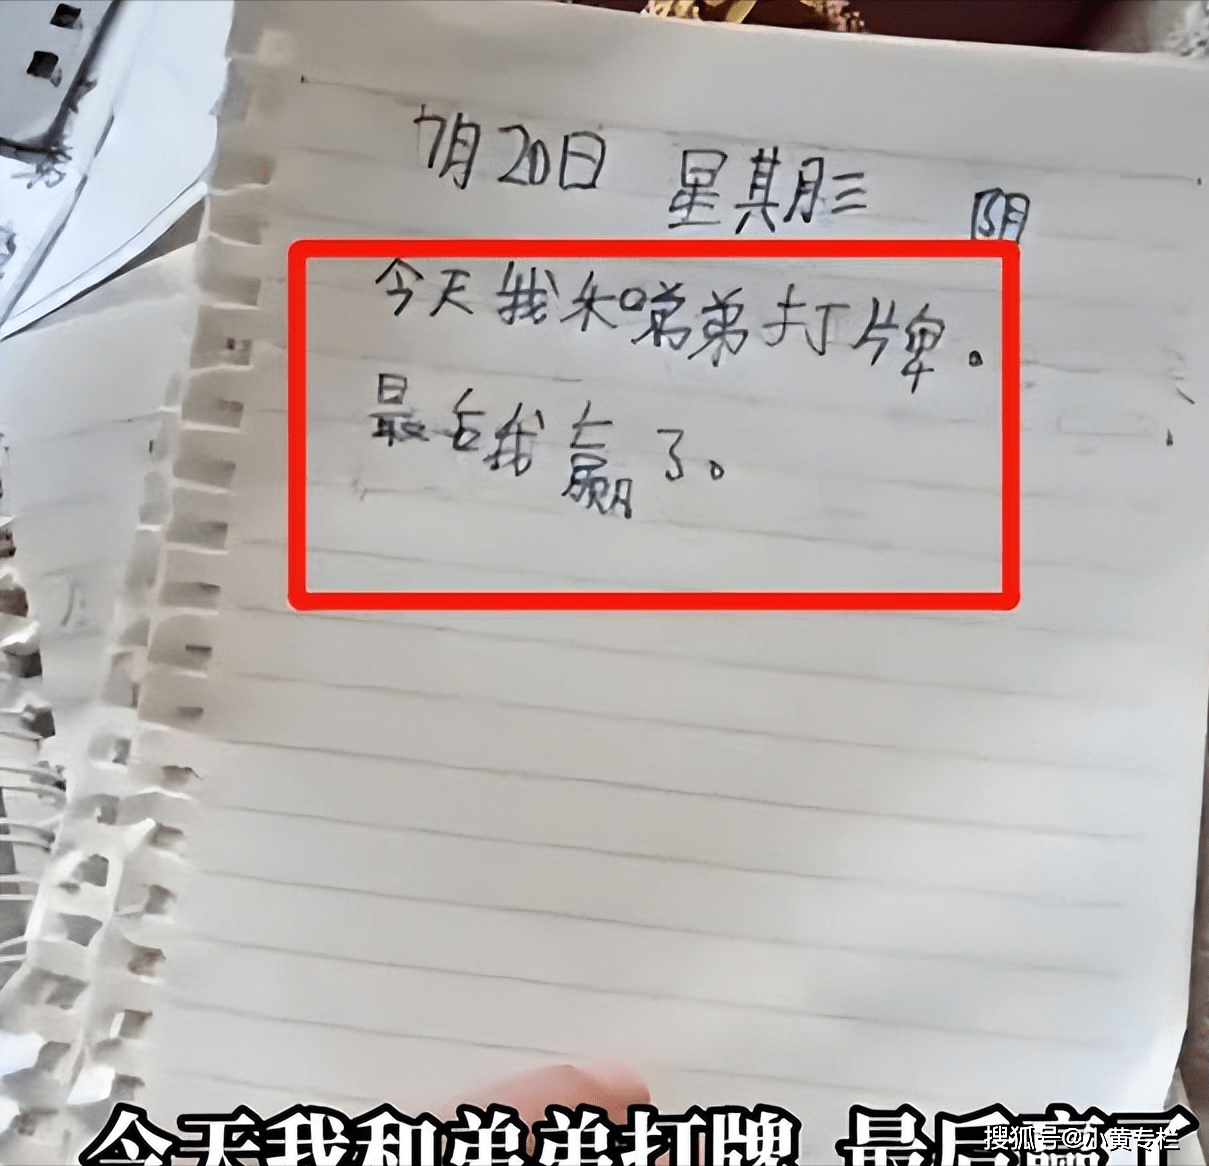 7月20日 星期三 阴
今天我和弟弟打牌。
最后我赢了。
今天我和弟弟打牌 最后赢了
搜狐号@小黄专栏